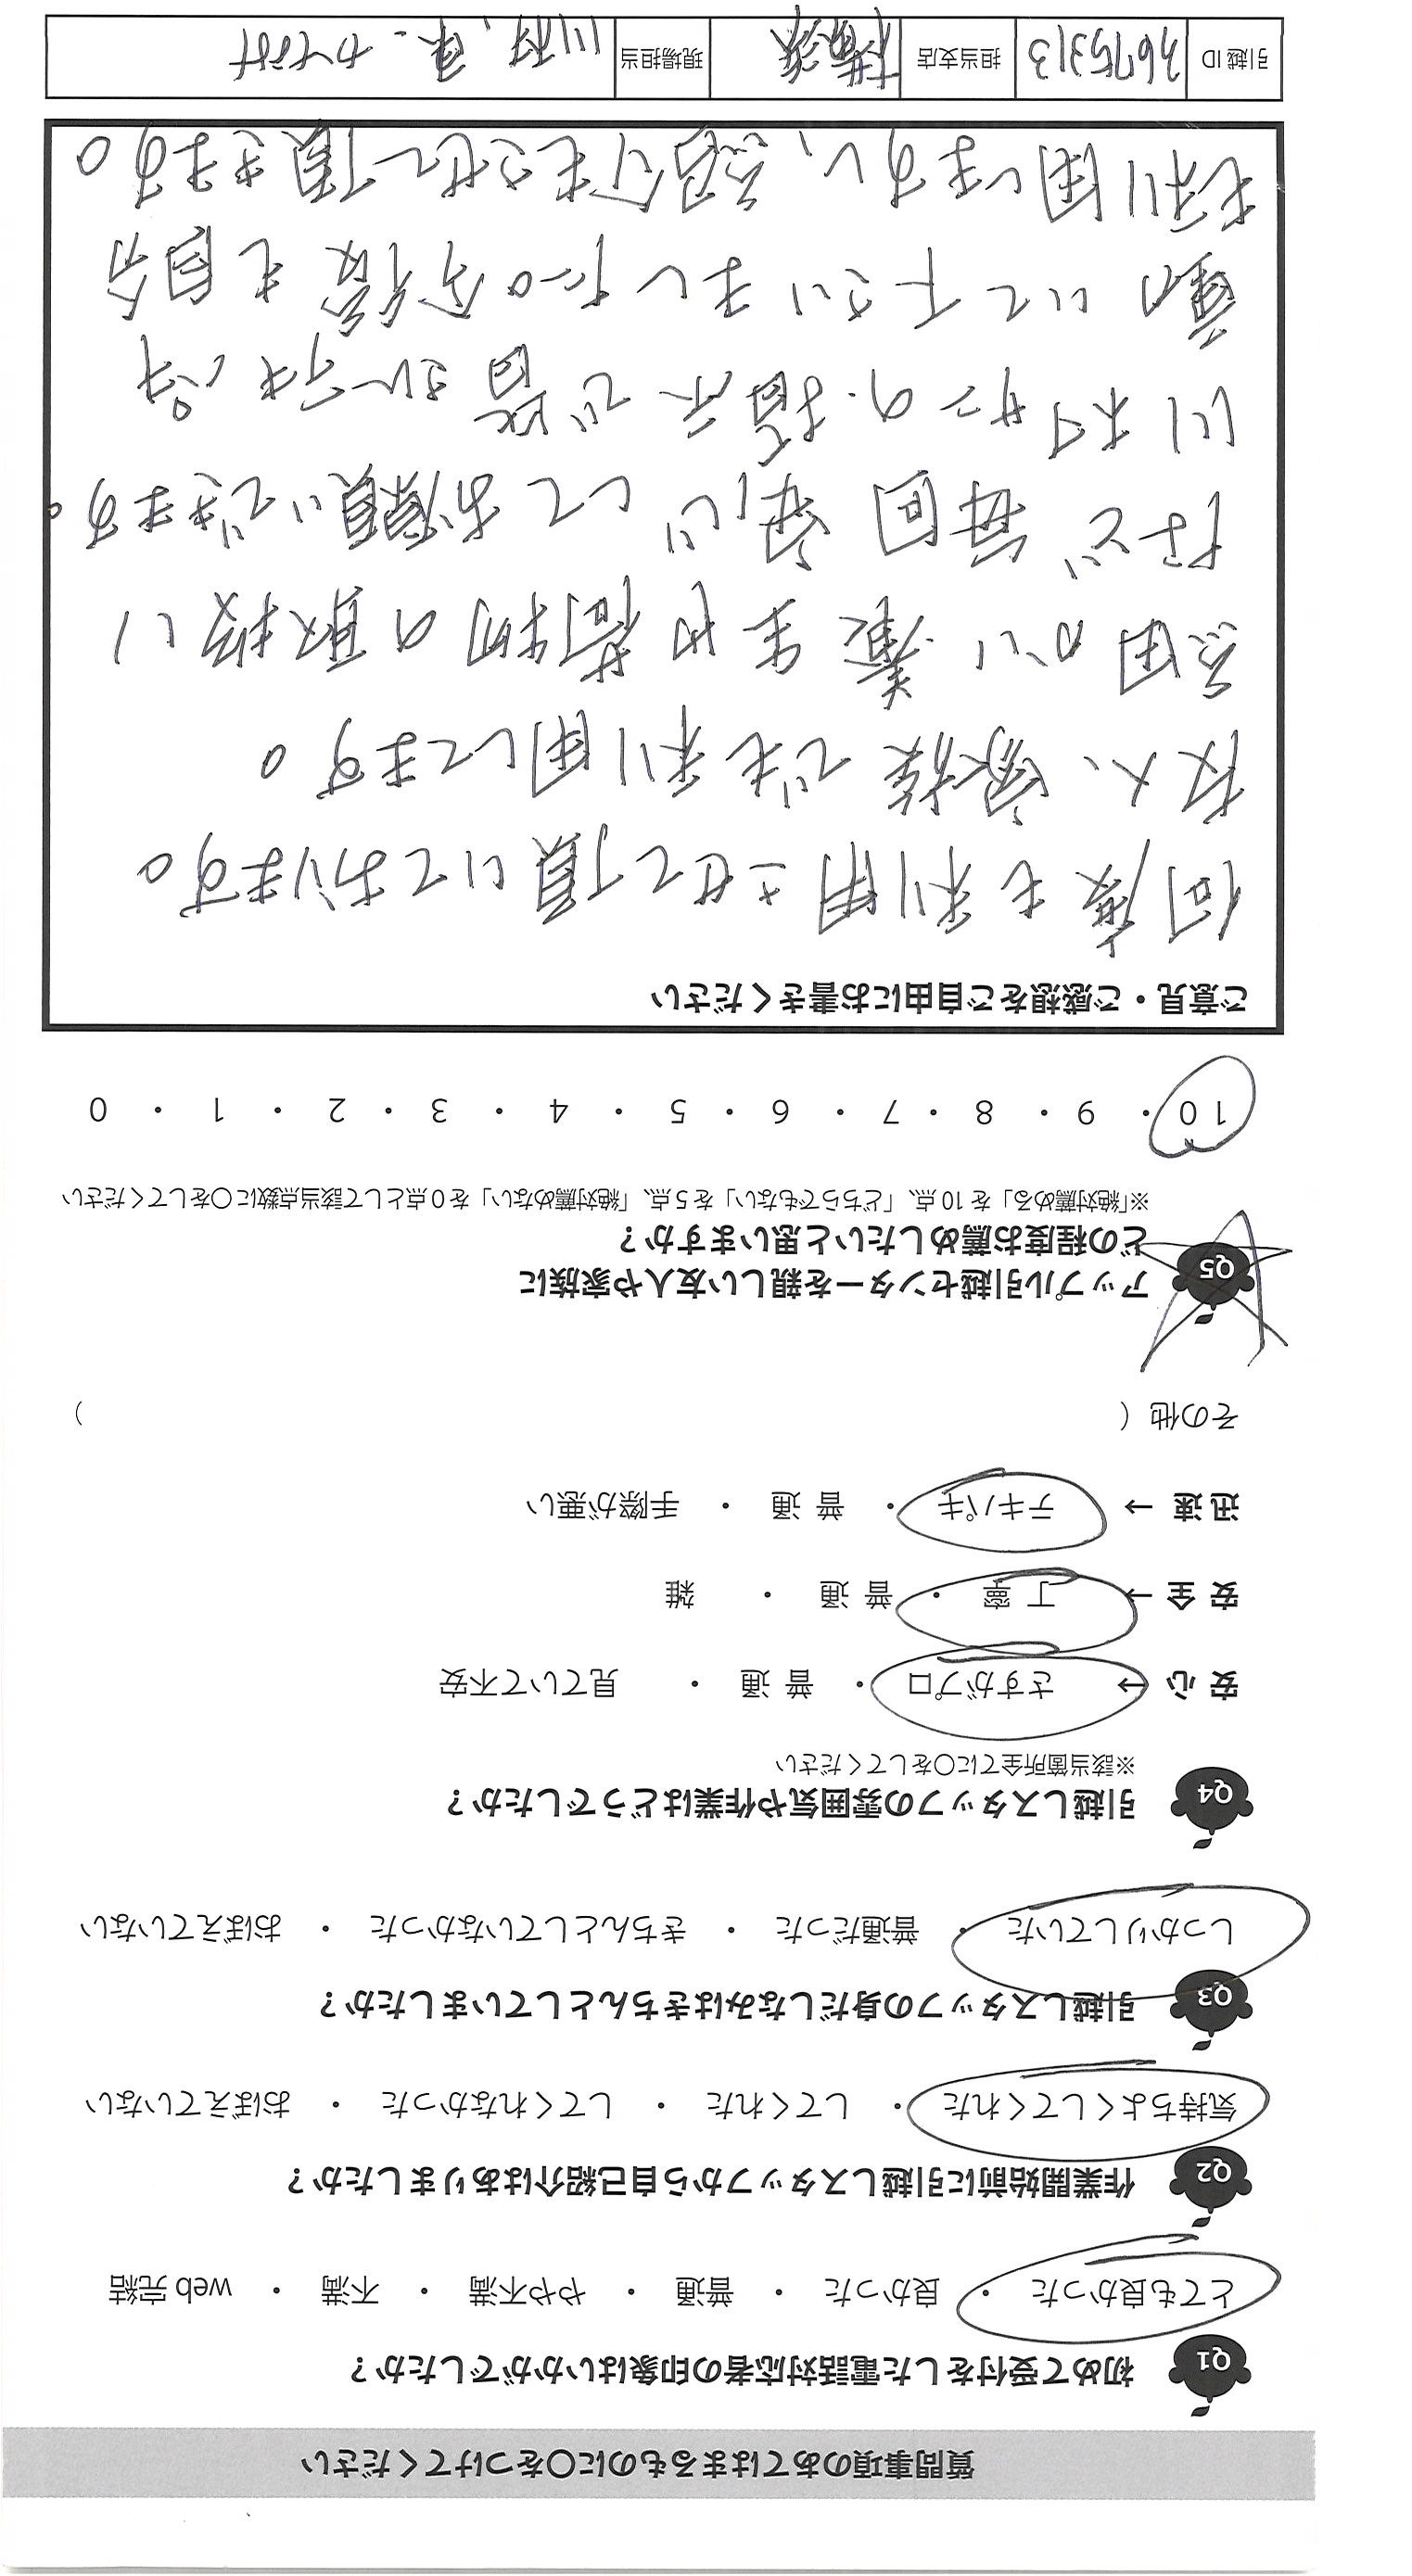 質問事項のあてはまるものに〇をつけてください
Q1 初めて受付をした電話対応者の印象はいかがでしたか？
とても良かった ・ 良かった ・ 普通 ・ やや不満 ・ 不満 ・ web 完結
Q2 作業開始前に引越しスタッフから自己紹介はありましたか？
気持ちよくしてくれた ・ してくれた ・ してくれなかった ・ おぼえていない
Q3 引越しスタッフの身だしなみはきちんとしていましたか？
しっかりしていた ・ 普通だった ・ きちんとしていなかった ・ おぼえていない
Q4 引越しスタッフの雰囲気や作業はどうでしたか？
※該当箇所全てに〇をしてください
安 心 → さすがプロ ・ 普 通 ・ 見ていて不安
安 全 → 丁 寧 ・ 普 通 ・ 雑
迅 速 → テキパキ ・ 普 通 ・ 手際が悪い
その他（ ）
Q5 アップル引越センターを親しい友人や家族に
どの程度お薦めしたいと思いますか？
※「絶対薦める」を 10 点、「どちらでもない」を 5 点、「絶対薦めない」を 0 点として該当点数に〇をしてください
10 ・ 9 ・ 8 ・ 7 ・ 6 ・ 5 ・ 4 ・ 3 ・ 2 ・ 1 ・ 0
ご意見・ご感想をご自由にお書きください
何度も利用させて頂いております。
友人、家族でも利用してます。
雰囲かい 業 や荷物の取扱い
など、毎回 して お願いできます。
川村サンの指示で皆
動いて下さいました。今後も自分
も利用しますし、紹介もさせて頂きます。
引越 ID 3675313 担当支店 横浜 現場担当 川村、